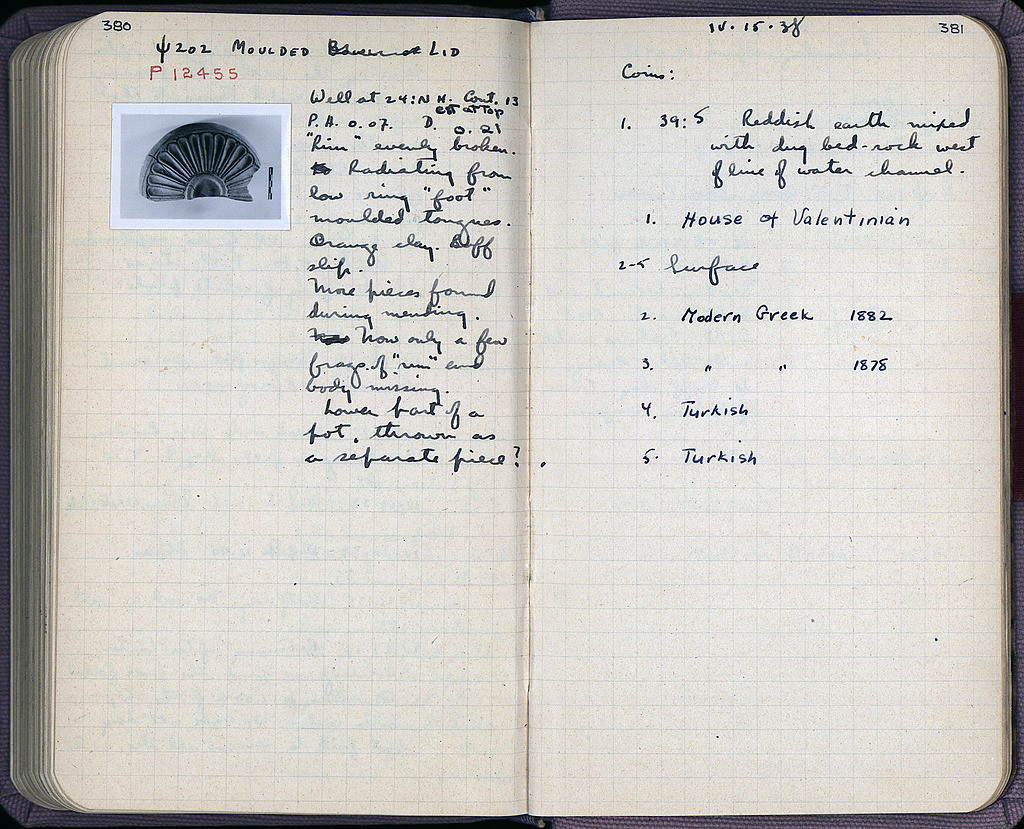 380
ψ202 MOULDED LID
P 12455
Well at 24:N H. Cont. 13
est at top
P.H. 0.07. D. 0.21
"Rim" evenly broken.
Radiating from
low ring "foot"
moulded tongues.
Orange clay. Buff
slip.
More pieces found
during mending.
Now only a few
frags. of "rim" and
body missing.
Lower part of a
pot, thrown as
a separate piece?.
IV. 15. 38
381
Coins:
1. 39:5 Reddish earth mixed
with dug bed-rock west
of line of water channel.
1. House of Valentinian
2-5 Surface
2. Modern Greek 1882
3. " " 1878
4. Turkish
5. Turkish